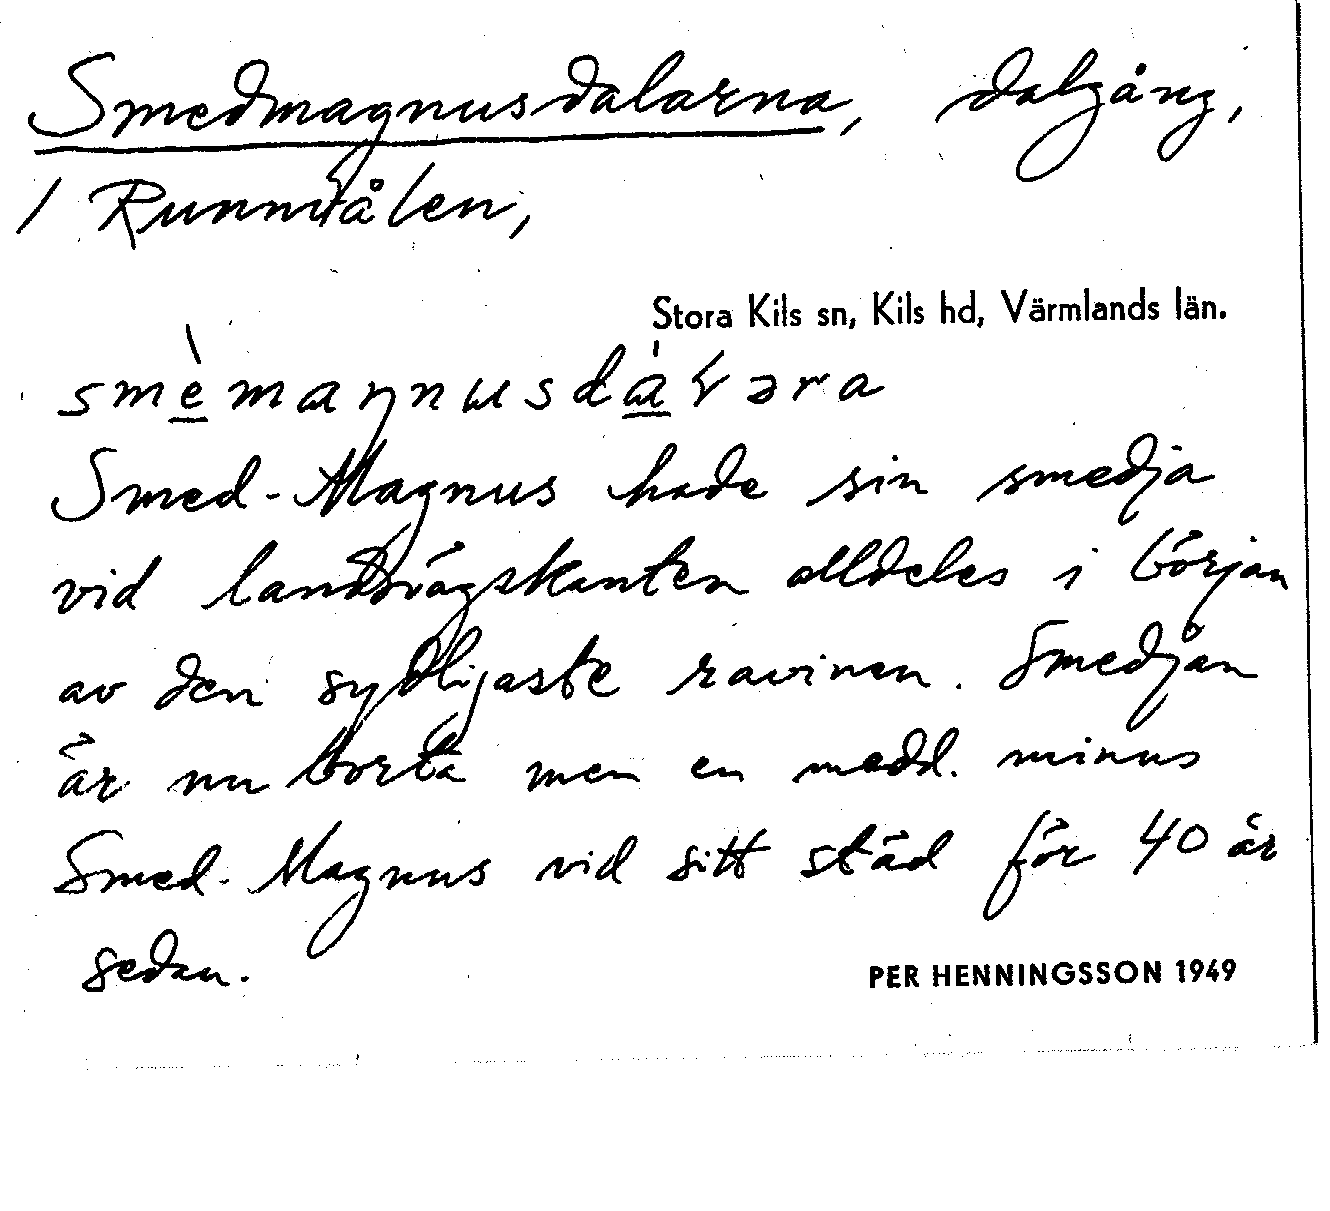 Smedmagnusdalarna, dalgång,
/ Runnmålen,
Stora Kils sn, Kils hd, Värmlands län.
smèmaŋnusdàɽəra
Smed-Magnus hade sin smedja
vid landsvägskanten alldeles i början
av den sydligaste ravinen. Smedjan
är nu borta men en medd. minns
Smed-Magnus vid sitt städ för 40 år
sedan.
PER HENNINGSSON 1949